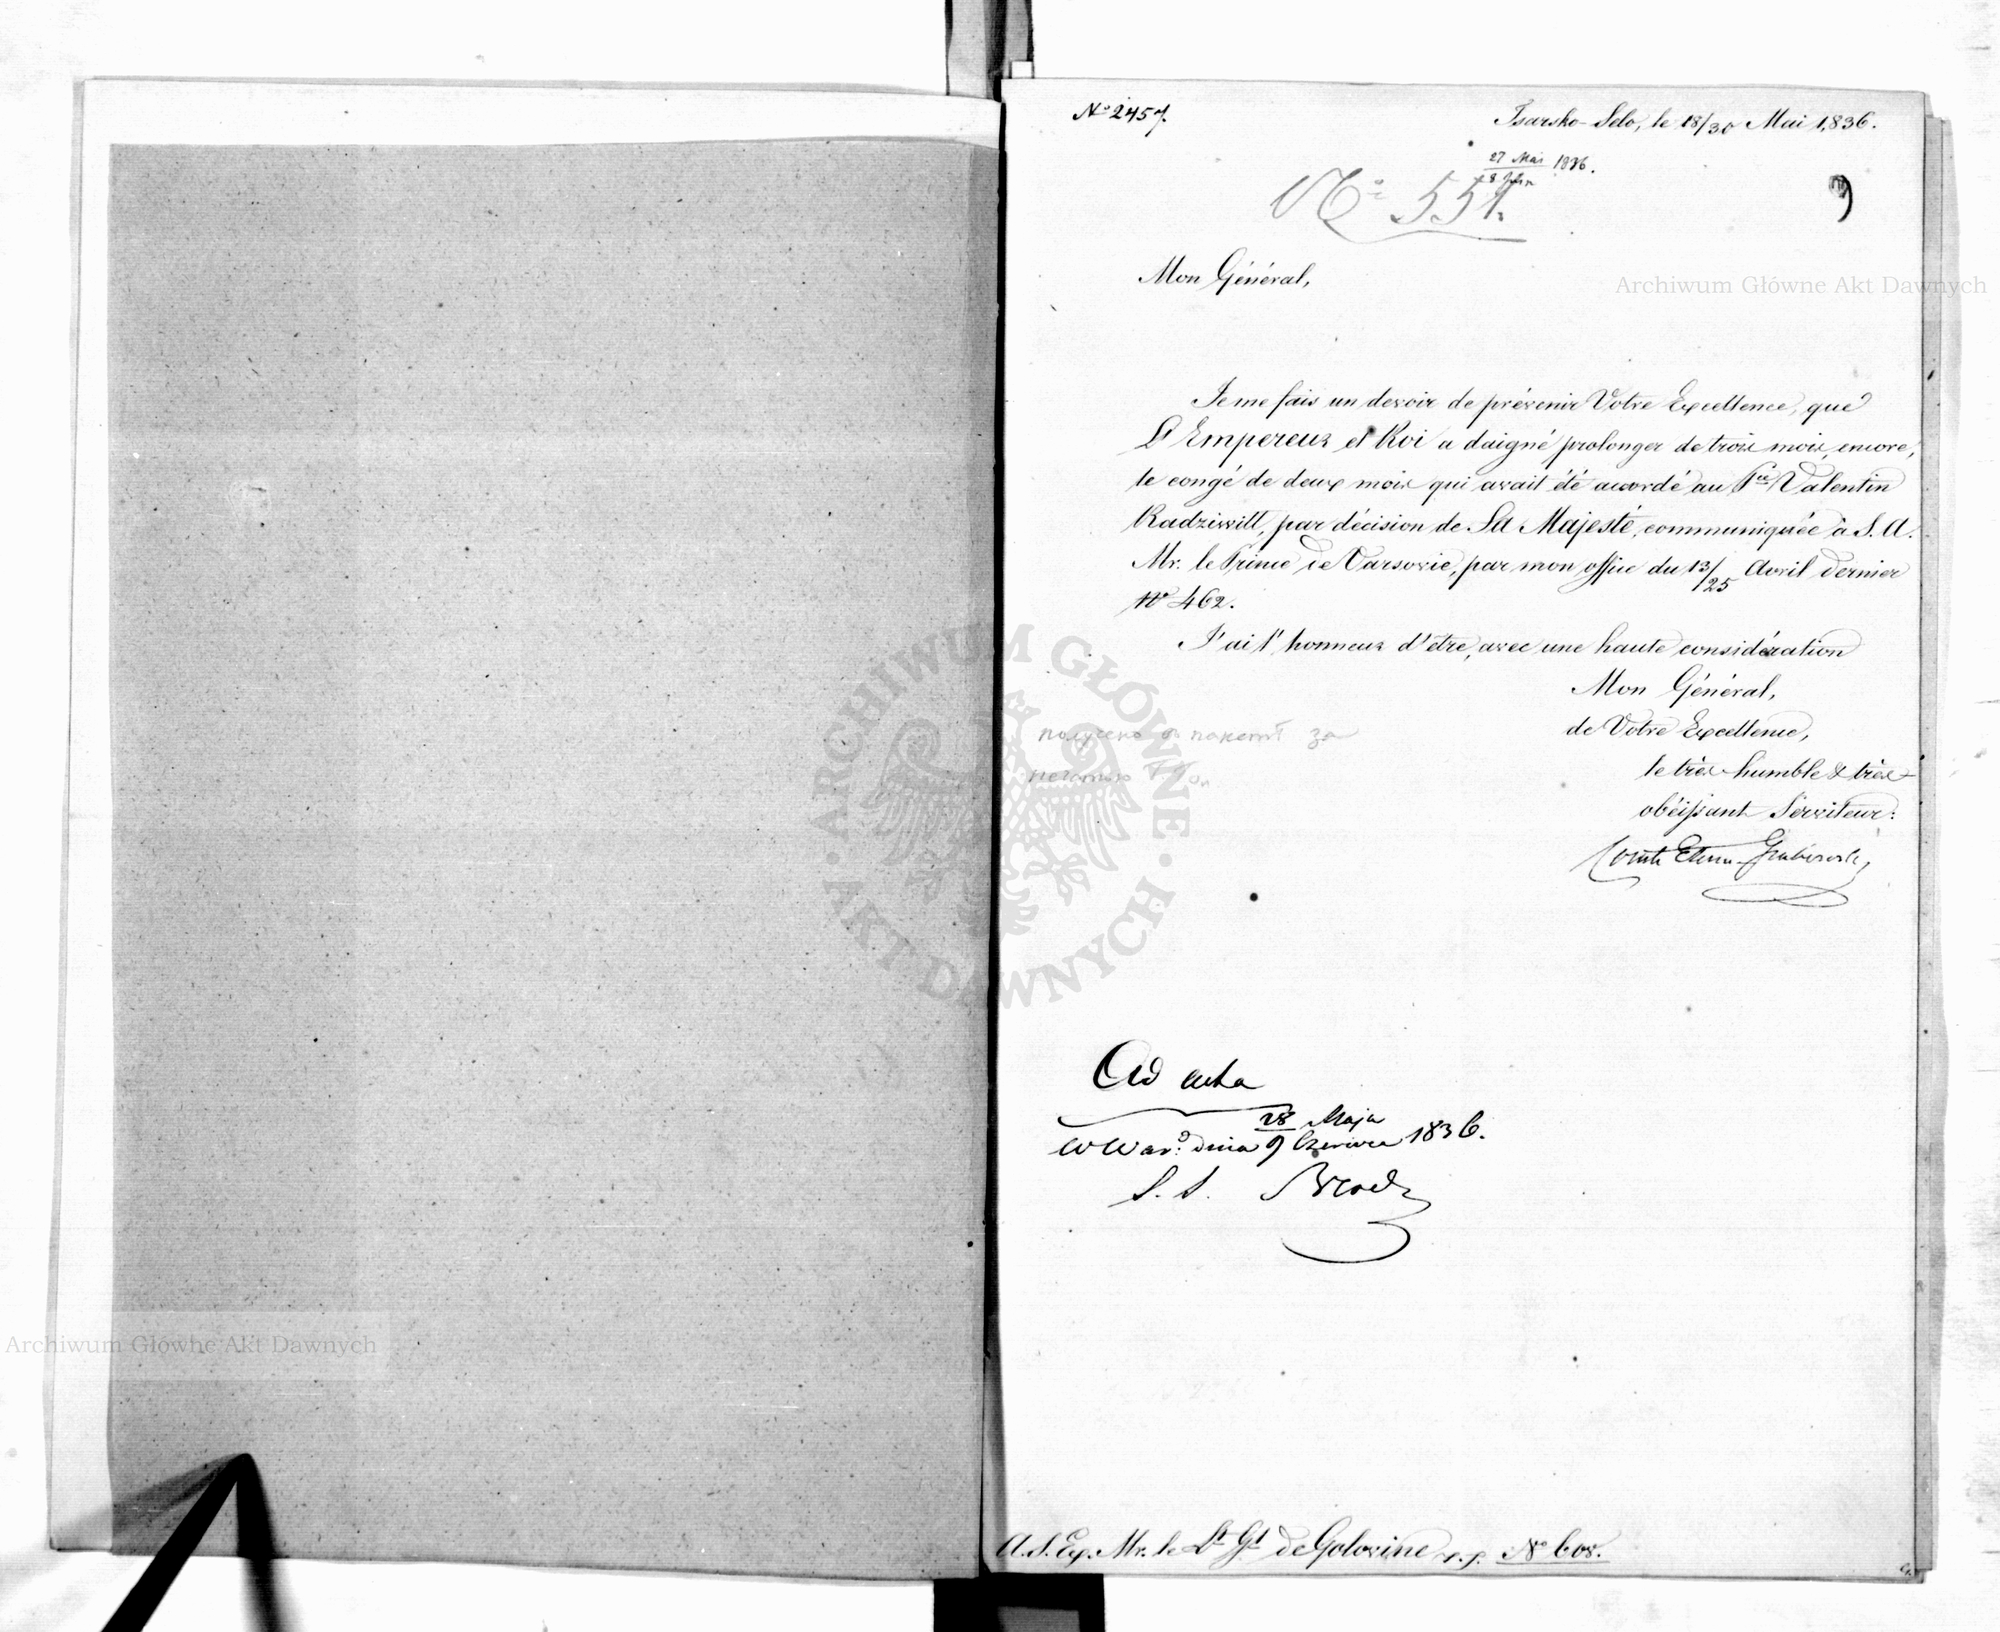 No 2457.
Tsarsko-Selo, le 18/30 Mai 1836.
27 Mai 1836.
8
No 551.
9
Mon Général,
Archiwum Główne Akt Dawnych
Je me fais un devoir de prévenir Votre Excellence, que
L'Empereur et Roi a daigné prolonger de trois mois encore,
le congé de deux mois qui avait été accordé au Pce Valentin
Radziwill, par décision de Sa Majesté, communiquée à S. A.
Mr. le Prince de Varsovie, par mon office du 13/25 Avril dernier
No 462.
J'ai l'honneur d'être, avec une haute considération
Mon Général,
de Votre Excellence,
le très-humble & très-
obéissant Serviteur:
Comte Etienne Grabowski
получено въ пакетѣ за
печатью
ARCHIWUM GŁÓWNE AKT DAWNYCH
Ad acta
28 Maja
w War: dnia 9 Czerwca 1836.
S. S.
Archiwum Główne Akt Dawnych
A. S. Ex. Mr. le Lt Gl de Golovine No 608.